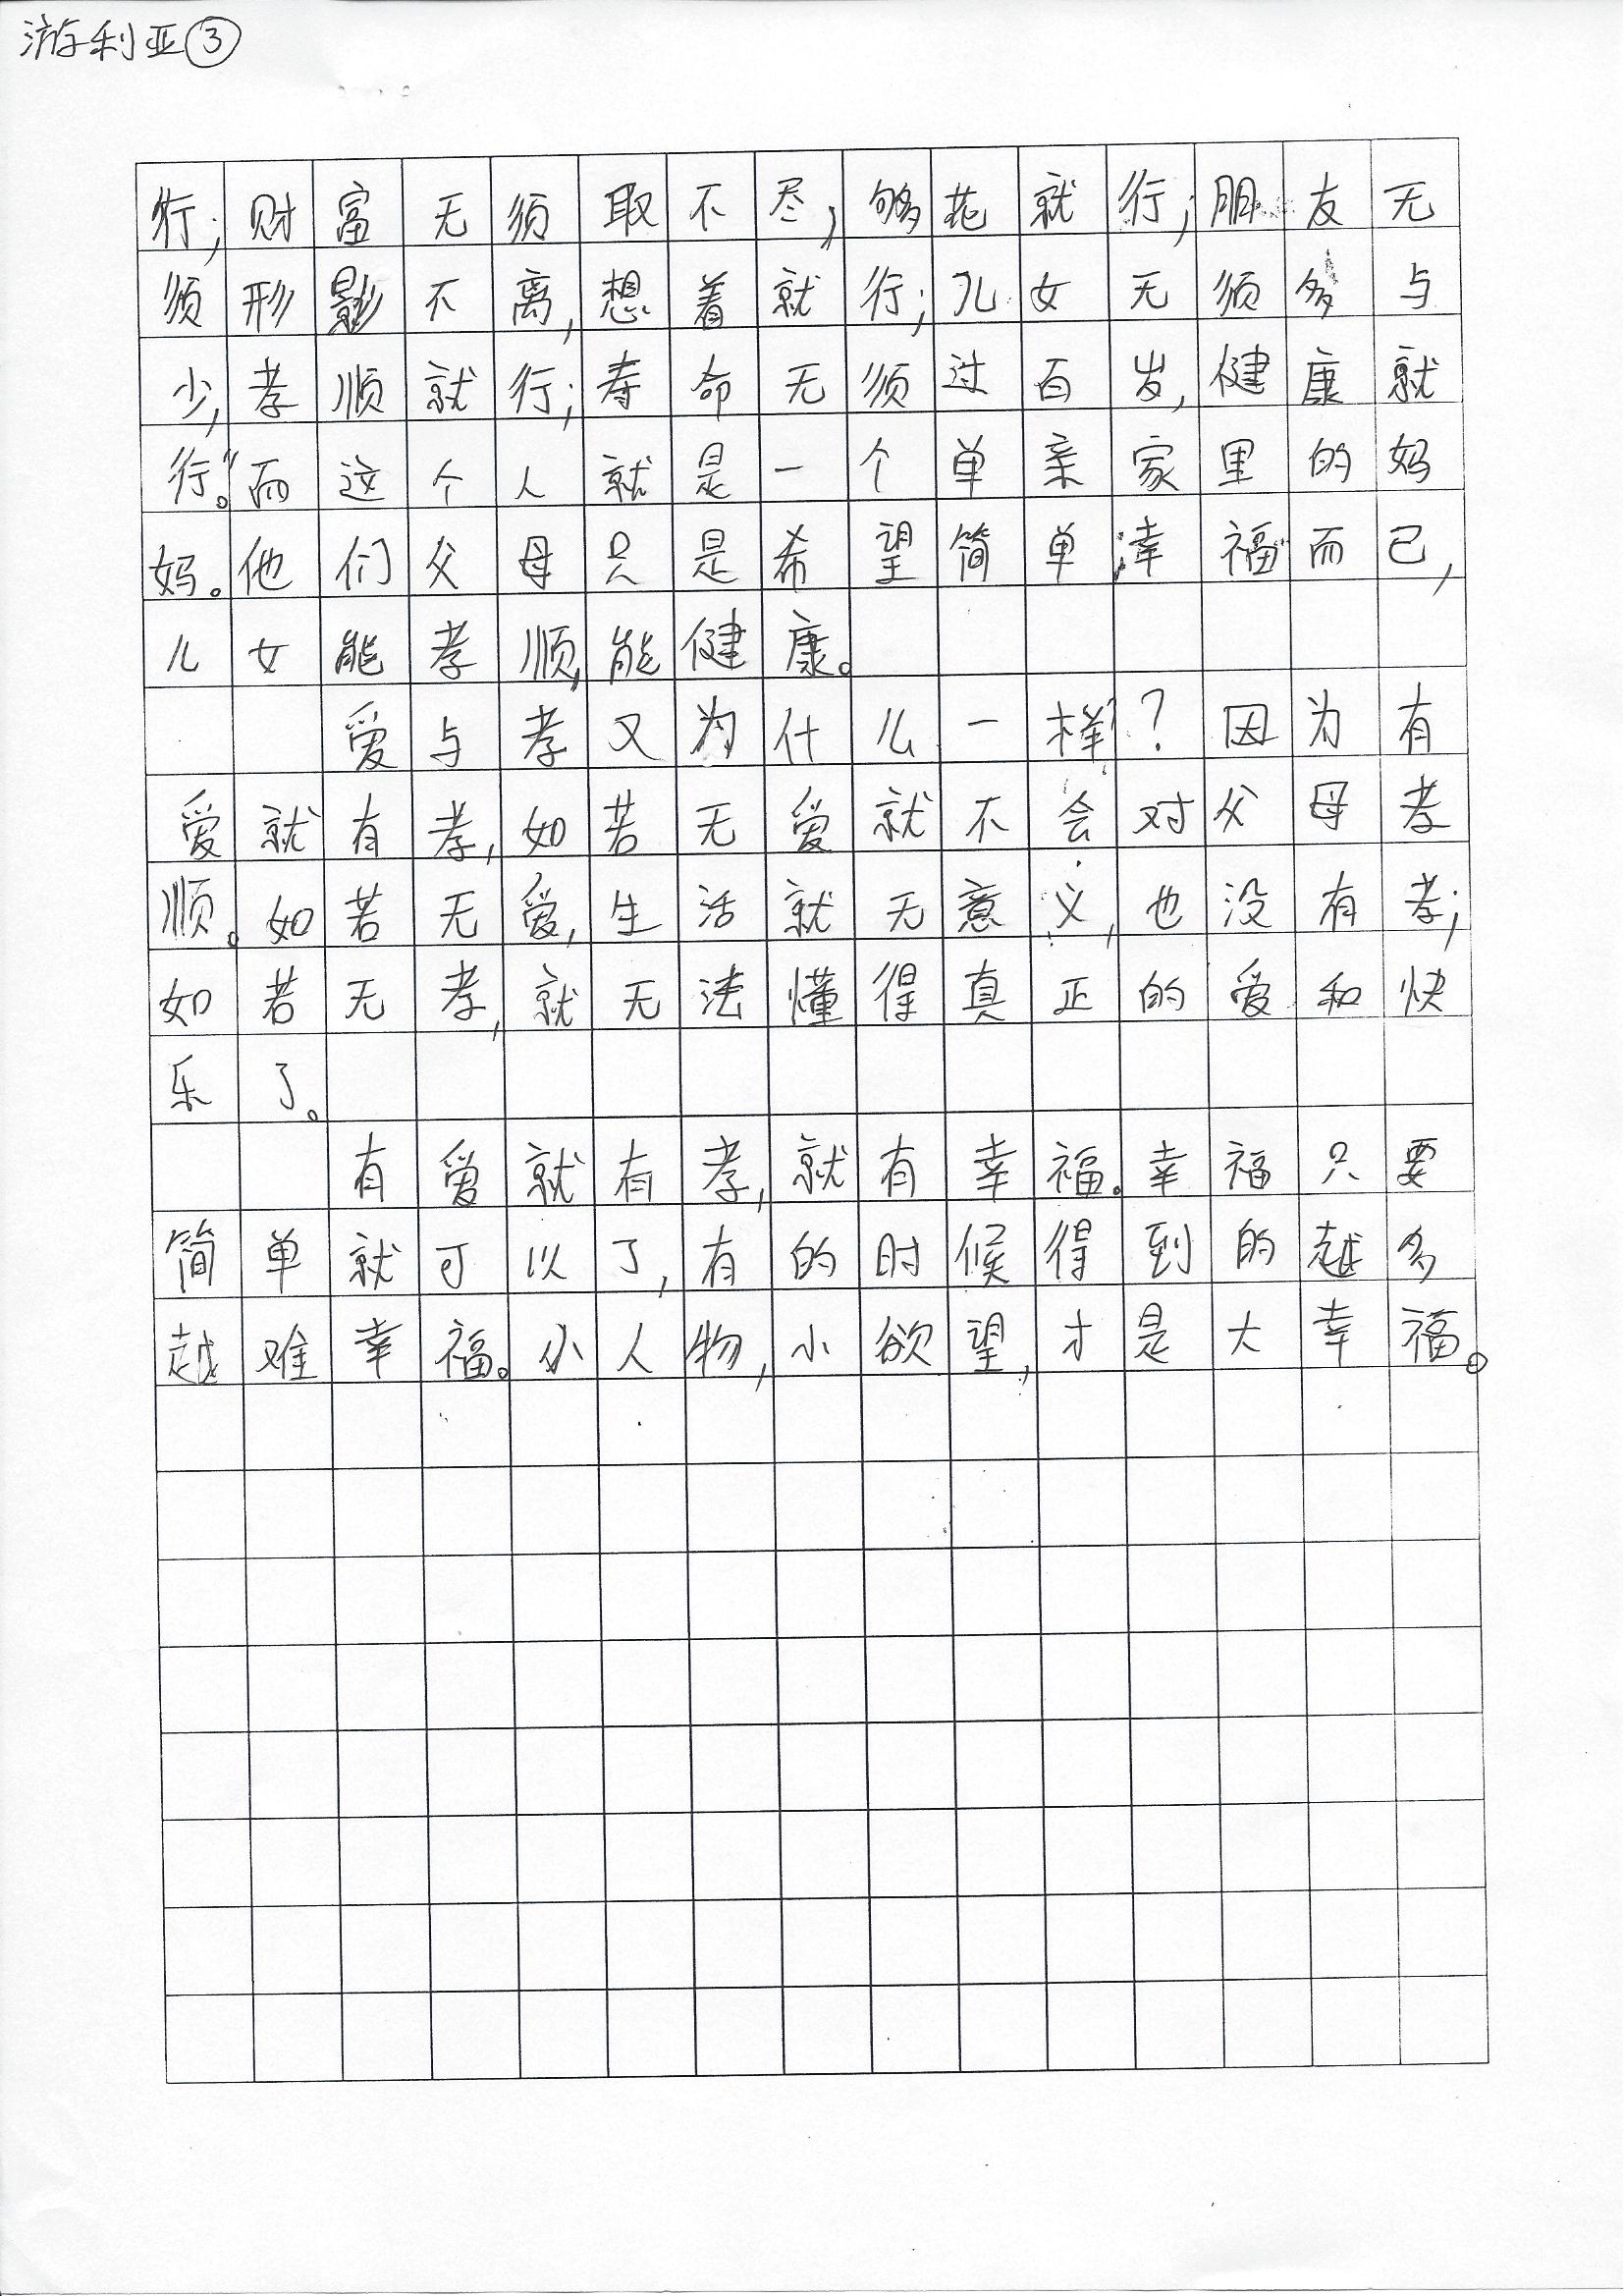 游利亚③
行；财富无须取不尽，够花就行；朋友无
须形影不离，想着就行；儿女无须多与
少，孝顺就行；寿命无须过百岁，健康就
行。”而这个人就是一个单亲家里的妈
妈。他们父母只是希望简单幸福而已，
儿女能孝顺，能健康。
爱与孝又为什么一样？因为有
爱就有孝，如若无爱就不会对父母孝
顺。如若无爱，生活就无意义，也没有孝；
如若无孝，就无法懂得真正的爱和快
乐了。
有爱就有孝，就有幸福。幸福只要
简单就可以了，有的时候得到的越多
越难幸福。小人物，小欲望，才是大幸福。